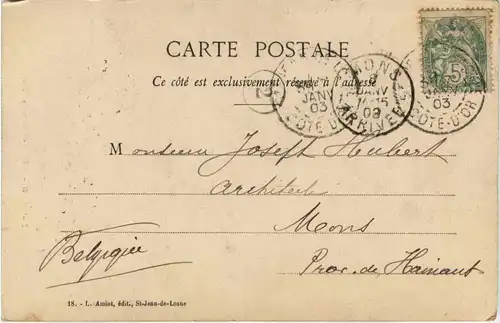 CARTE POSTALE
Ce côté est exclusivement réservé à l'adresse
JANV
03
CÔTE D
MONS
8
JANV
ARRIVÉE
5
03
CÔTE-D'OR
2
Monsieur Joseph Hubert
Architecte
Mons
Prov. de Hainaut
Belgique
18. - L. Amiot, édit., St-Jean-de-Losne